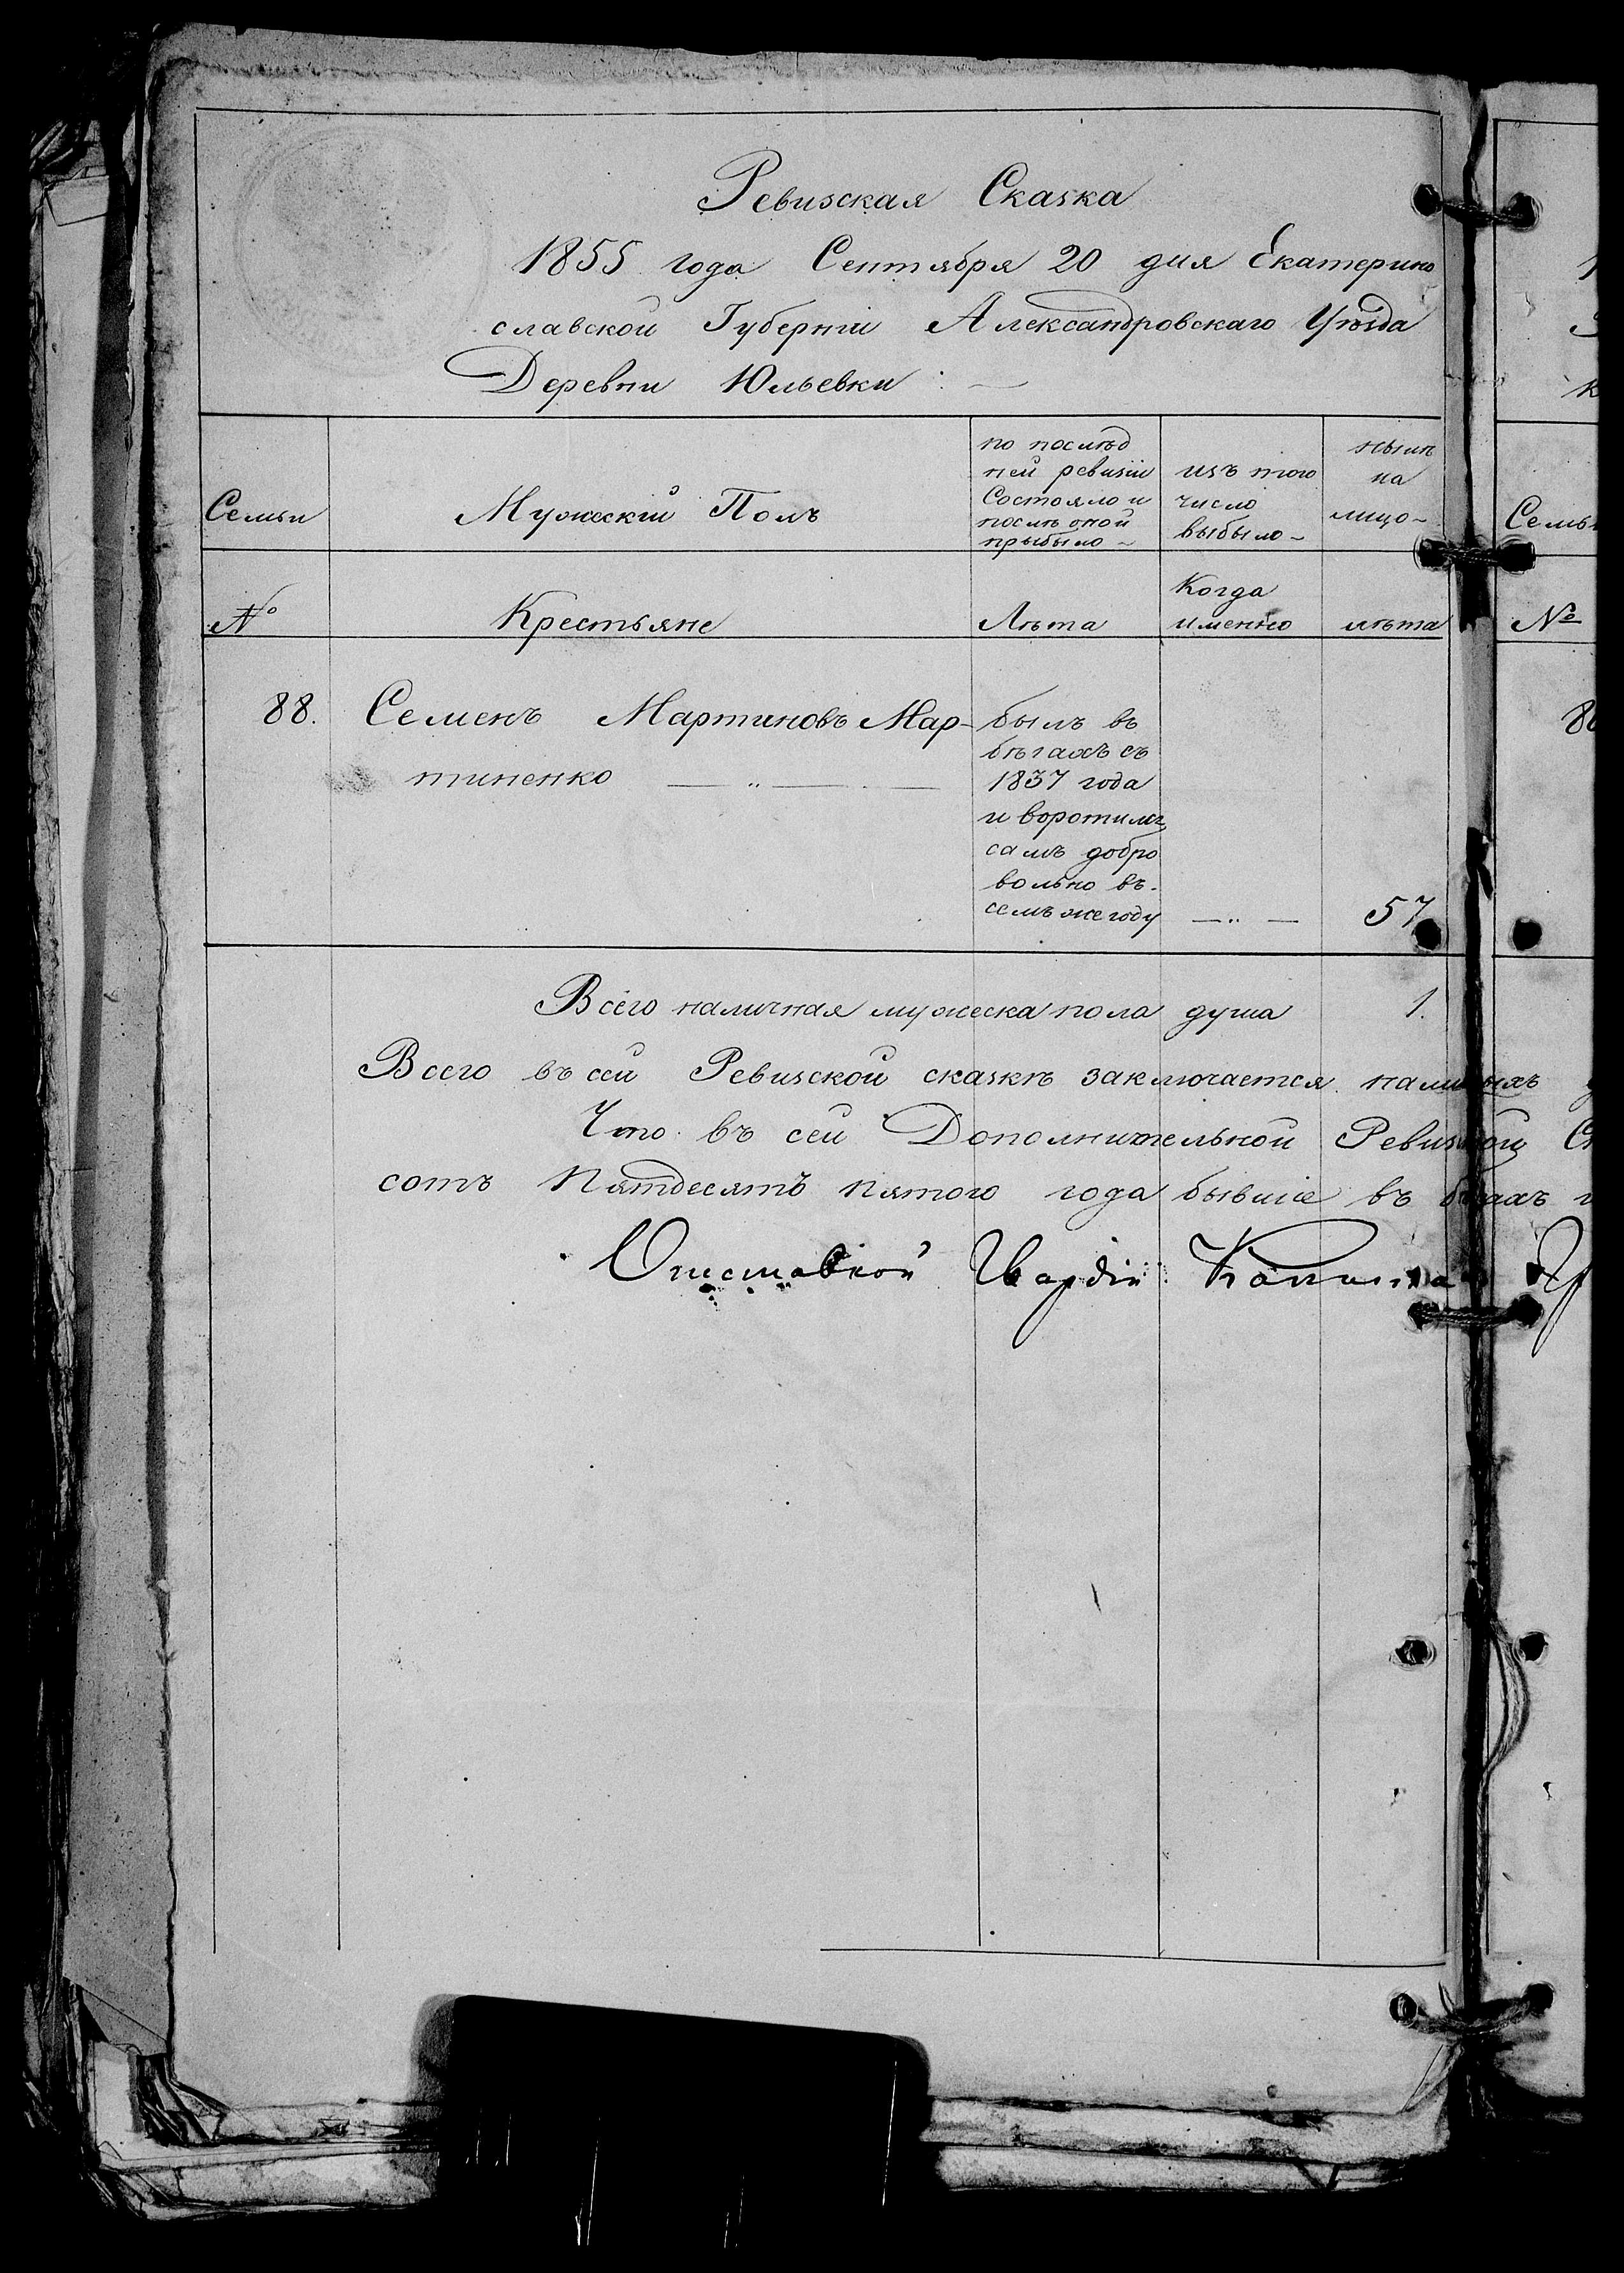 Ревизская Сказка
1855 года Сентября 20 дня Екатерино
славской Губерніи Александровскаго Уѣзда
Деревни Юльевки : —
Семьи
Мужескій Полъ
по послѣд
ней ревизіи
Состояло и
послѣ оной
прыбыло ~
изъ того
число
выбыло ~
нынѣ
на
лицо ~
Семь
№
Крестьяне
Лѣта
Когда
именно
лѣта
№
88. Семенъ Мартиновъ Мар-
тиненко — „ — —
былъ въ
бѣгахъ съ
1837 года
и воротилъ
самъ добро
вольно въ
семъ же году — „ — 57
Всего наличная мужеска пола душа 1.
Всего въ сей Ревизской сказкѣ заключается наличныхъ
Что въ сей Дополнительной Ревизской
сотъ Пятдесятъ пятого года бывшіе въ бѣгахъ
Отставной Гвардіи